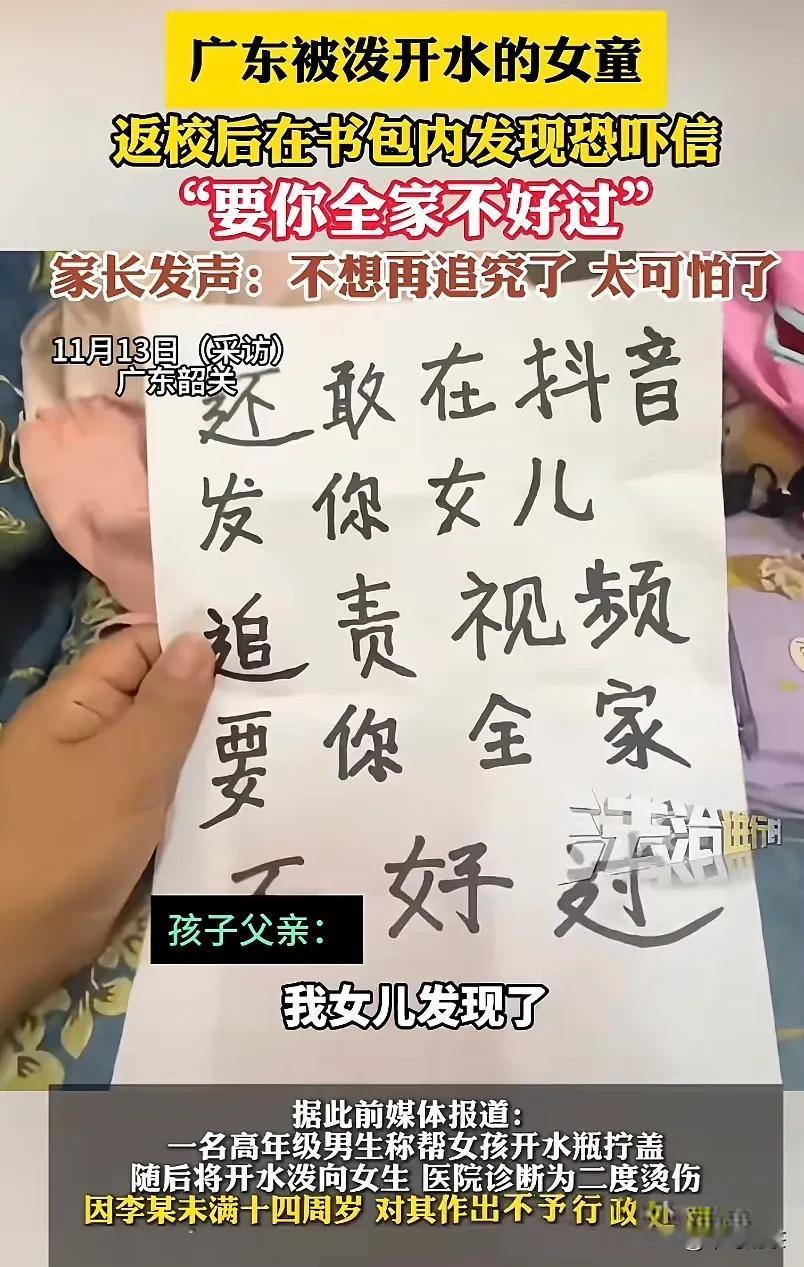 广东被泼开水的女童
返校后在书包内发现恐吓信
“要你全家不好过”
家长发声：不想再追究了 太可怕了
11月13日（采访）
广东韶关
还敢在抖音
发你女儿
追责视频
要你全家
不好过
法治进行时
孩子父亲：
我女儿发现了
据此前媒体报道：
一名高年级男生称帮女孩开水瓶拧盖
随后将开水泼向女生 医院诊断为二度烫伤
因李某未满十四周岁 对其作出不予行政处